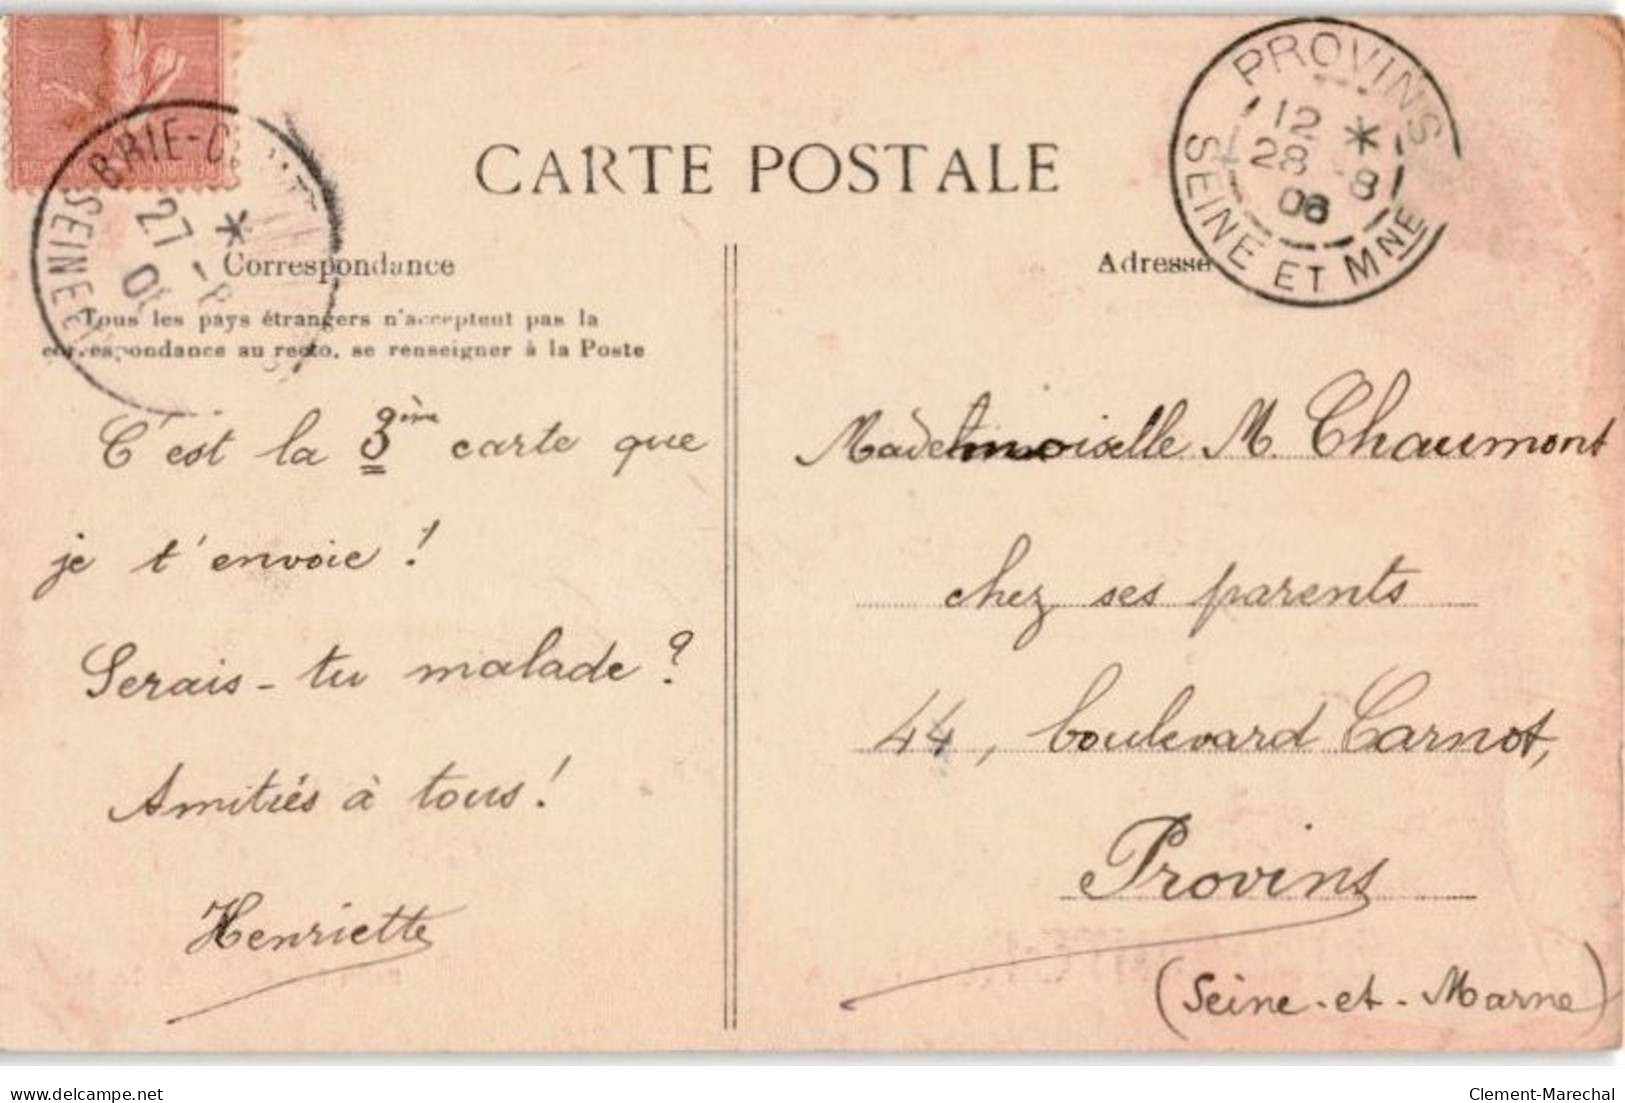 CARTE POSTALE
PROVINS
12 *
28 -8
06
SEINE ET MNE
BRIE-C
27 -8
SEINE ET
Correspondance
Tous les pays étrangers n'acceptent pas la
correspondance au recto, se renseigner à la Poste
C'est la 3ème carte que
je t'envoie !
Serais-tu malade ?
Amitiés à tous !
Henriette
Adresse
Mademoiselle M. Chaumont
chez ses parents
44, boulevard Carnot,
Provins
(Seine-et-Marne)
delcampe.net
Clement-Marechal